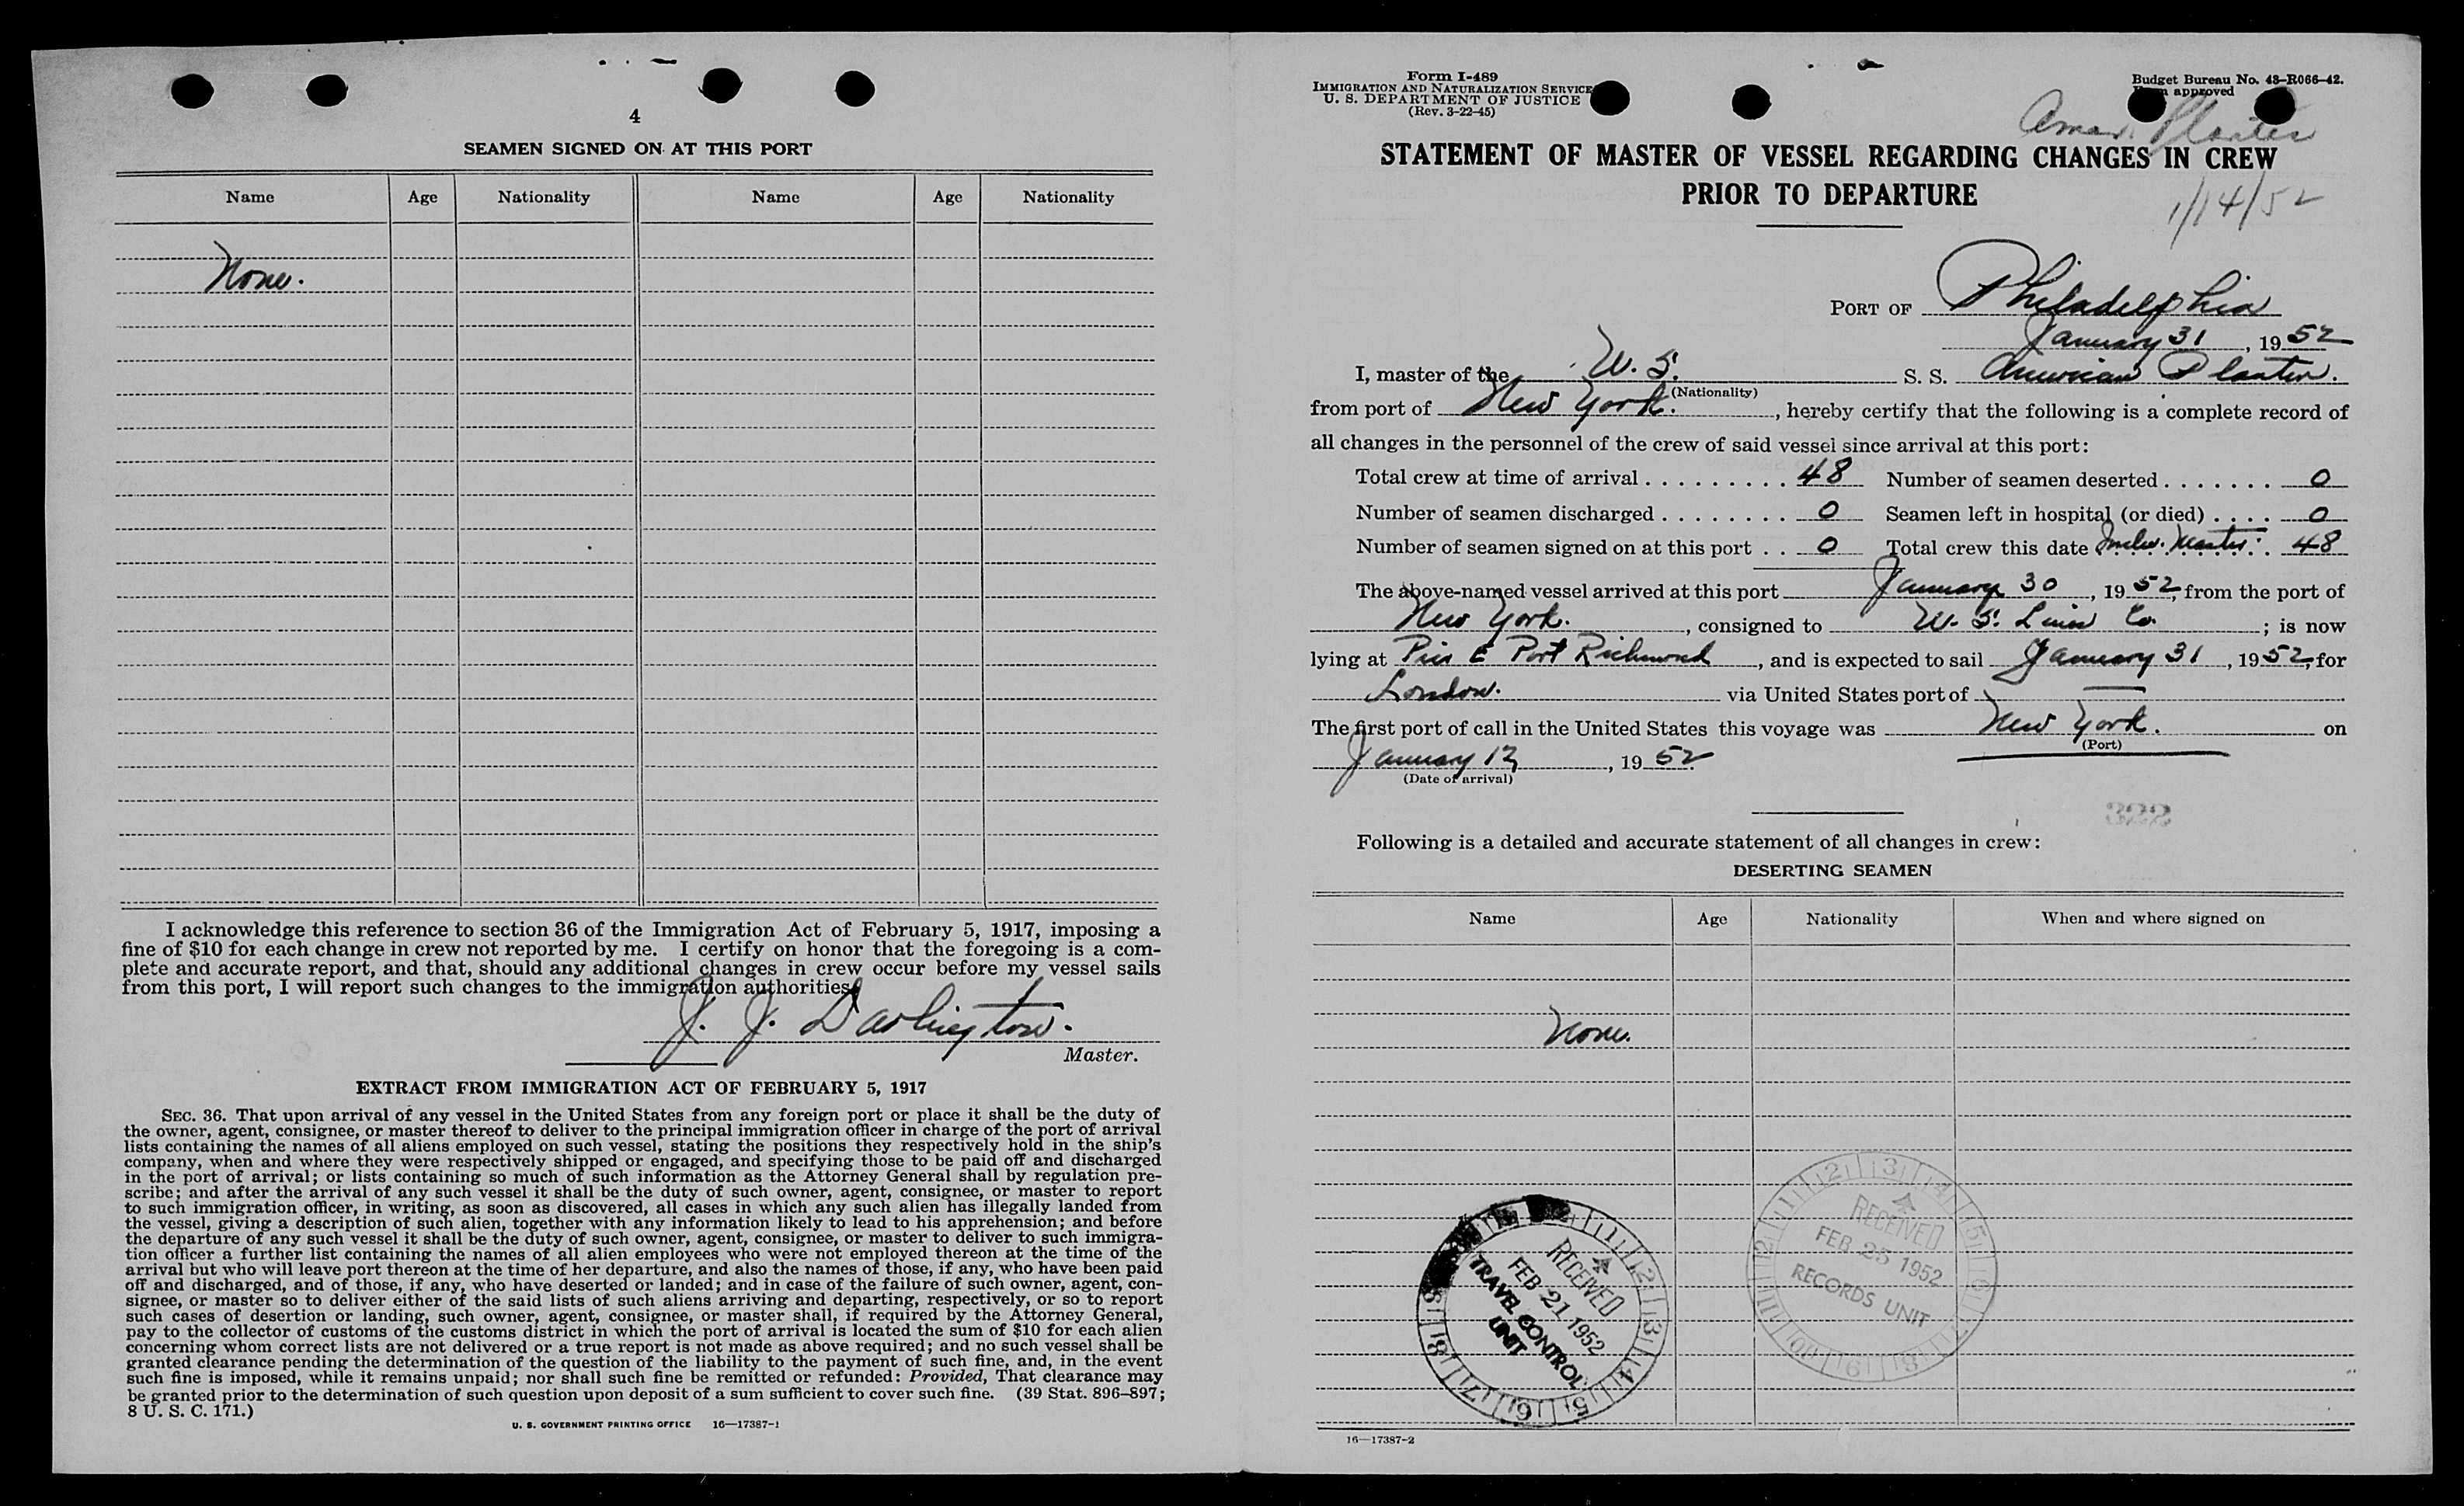 4
SEAMEN SIGNED ON AT THIS PORT
Name Age Nationality Name Age Nationality
None.
I acknowledge this reference to section 36 of the Immigration Act of February 5, 1917, imposing a
fine of $10 for each change in crew not reported by me. I certify on honor that the foregoing is a com-
plete and accurate report, and that, should any additional changes in crew occur before my vessel sails
from this port, I will report such changes to the immigration authorities.
J. J. Darlington.
Master.
EXTRACT FROM IMMIGRATION ACT OF FEBRUARY 5, 1917
SEC. 36. That upon arrival of any vessel in the United States from any foreign port or place it shall be the duty of
the owner, agent, consignee, or master thereof to deliver to the principal immigration officer in charge of the port of arrival
lists containing the names of all aliens employed on such vessel, stating the positions they respectively hold in the ship's
company, when and where they were respectively shipped or engaged, and specifying those to be paid off and discharged
in the port of arrival; or lists containing so much of such information as the Attorney General shall by regulation pre-
scribe; and after the arrival of any such vessel it shall be the duty of such owner, agent, consignee, or master to report
to such immigration officer, in writing, as soon as discovered, all cases in which any such alien has illegally landed from
the vessel, giving a description of such alien, together with any information likely to lead to his apprehension; and before
the departure of any such vessel it shall be the duty of such owner, agent, consignee, or master to deliver to such immigra-
tion officer a further list containing the names of all alien employees who were not employed thereon at the time of the
arrival but who will leave port thereon at the time of her departure, and also the names of those, if any, who have been paid
off and discharged, and of those, if any, who have deserted or landed; and in case of the failure of such owner, agent, con-
signee, or master so to deliver either of the said lists of such aliens arriving and departing, respectively, or so to report
such cases of desertion or landing, such owner, agent, consignee, or master shall, if required by the Attorney General,
pay to the collector of customs of the customs district in which the port of arrival is located the sum of $10 for each alien
concerning whom correct lists are not delivered or a true report is not made as above required; and no such vessel shall be
granted clearance pending the determination of the question of the liability to the payment of such fine, and, in the event
such fine is imposed, while it remains unpaid; nor shall such fine be remitted or refunded: Provided, That clearance may
be granted prior to the determination of such question upon deposit of a sum sufficient to cover such fine. (39 Stat. 896–897;
8 U. S. C. 171.)
U. S. GOVERNMENT PRINTING OFFICE 16—17387-1
Form I-489
IMMIGRATION AND NATURALIZATION SERVICE
U. S. DEPARTMENT OF JUSTICE
(Rev. 3-22-45)
Budget Bureau No. 43-R066-42.
approved
Amer. Planter
STATEMENT OF MASTER OF VESSEL REGARDING CHANGES IN CREW
PRIOR TO DEPARTURE
1/14/52
PORT OF Philadelphia
January 31, 1952
I, master of the U. S. S. S. American Planter.
(Nationality)
from port of New York., hereby certify that the following is a complete record of
all changes in the personnel of the crew of said vessel since arrival at this port:
Total crew at time of arrival . . . . . . . . . 48 Number of seamen deserted . . . . . . . 0
Number of seamen discharged . . . . . . . . 0 Seamen left in hospital (or died) . . . . 0
Number of seamen signed on at this port . . 0 Total crew this date Inclu. Master. 48
The above-named vessel arrived at this port January 30, 1952, from the port of
New York., consigned to U. S. Lines Co.; is now
lying at Pier E Port Richmond, and is expected to sail January 31, 1952, for
London. via United States port of —
The first port of call in the United States this voyage was New York. on
(Port)
January 12, 1952
(Date of arrival)
322
Following is a detailed and accurate statement of all changes in crew:
DESERTING SEAMEN
Name Age Nationality When and where signed on
None.
RECEIVED
FEB 21 1952
TRAVEL CONTROL
UNIT
RECEIVED
FEB 25 1952
RECORDS UNIT
16—17387-2